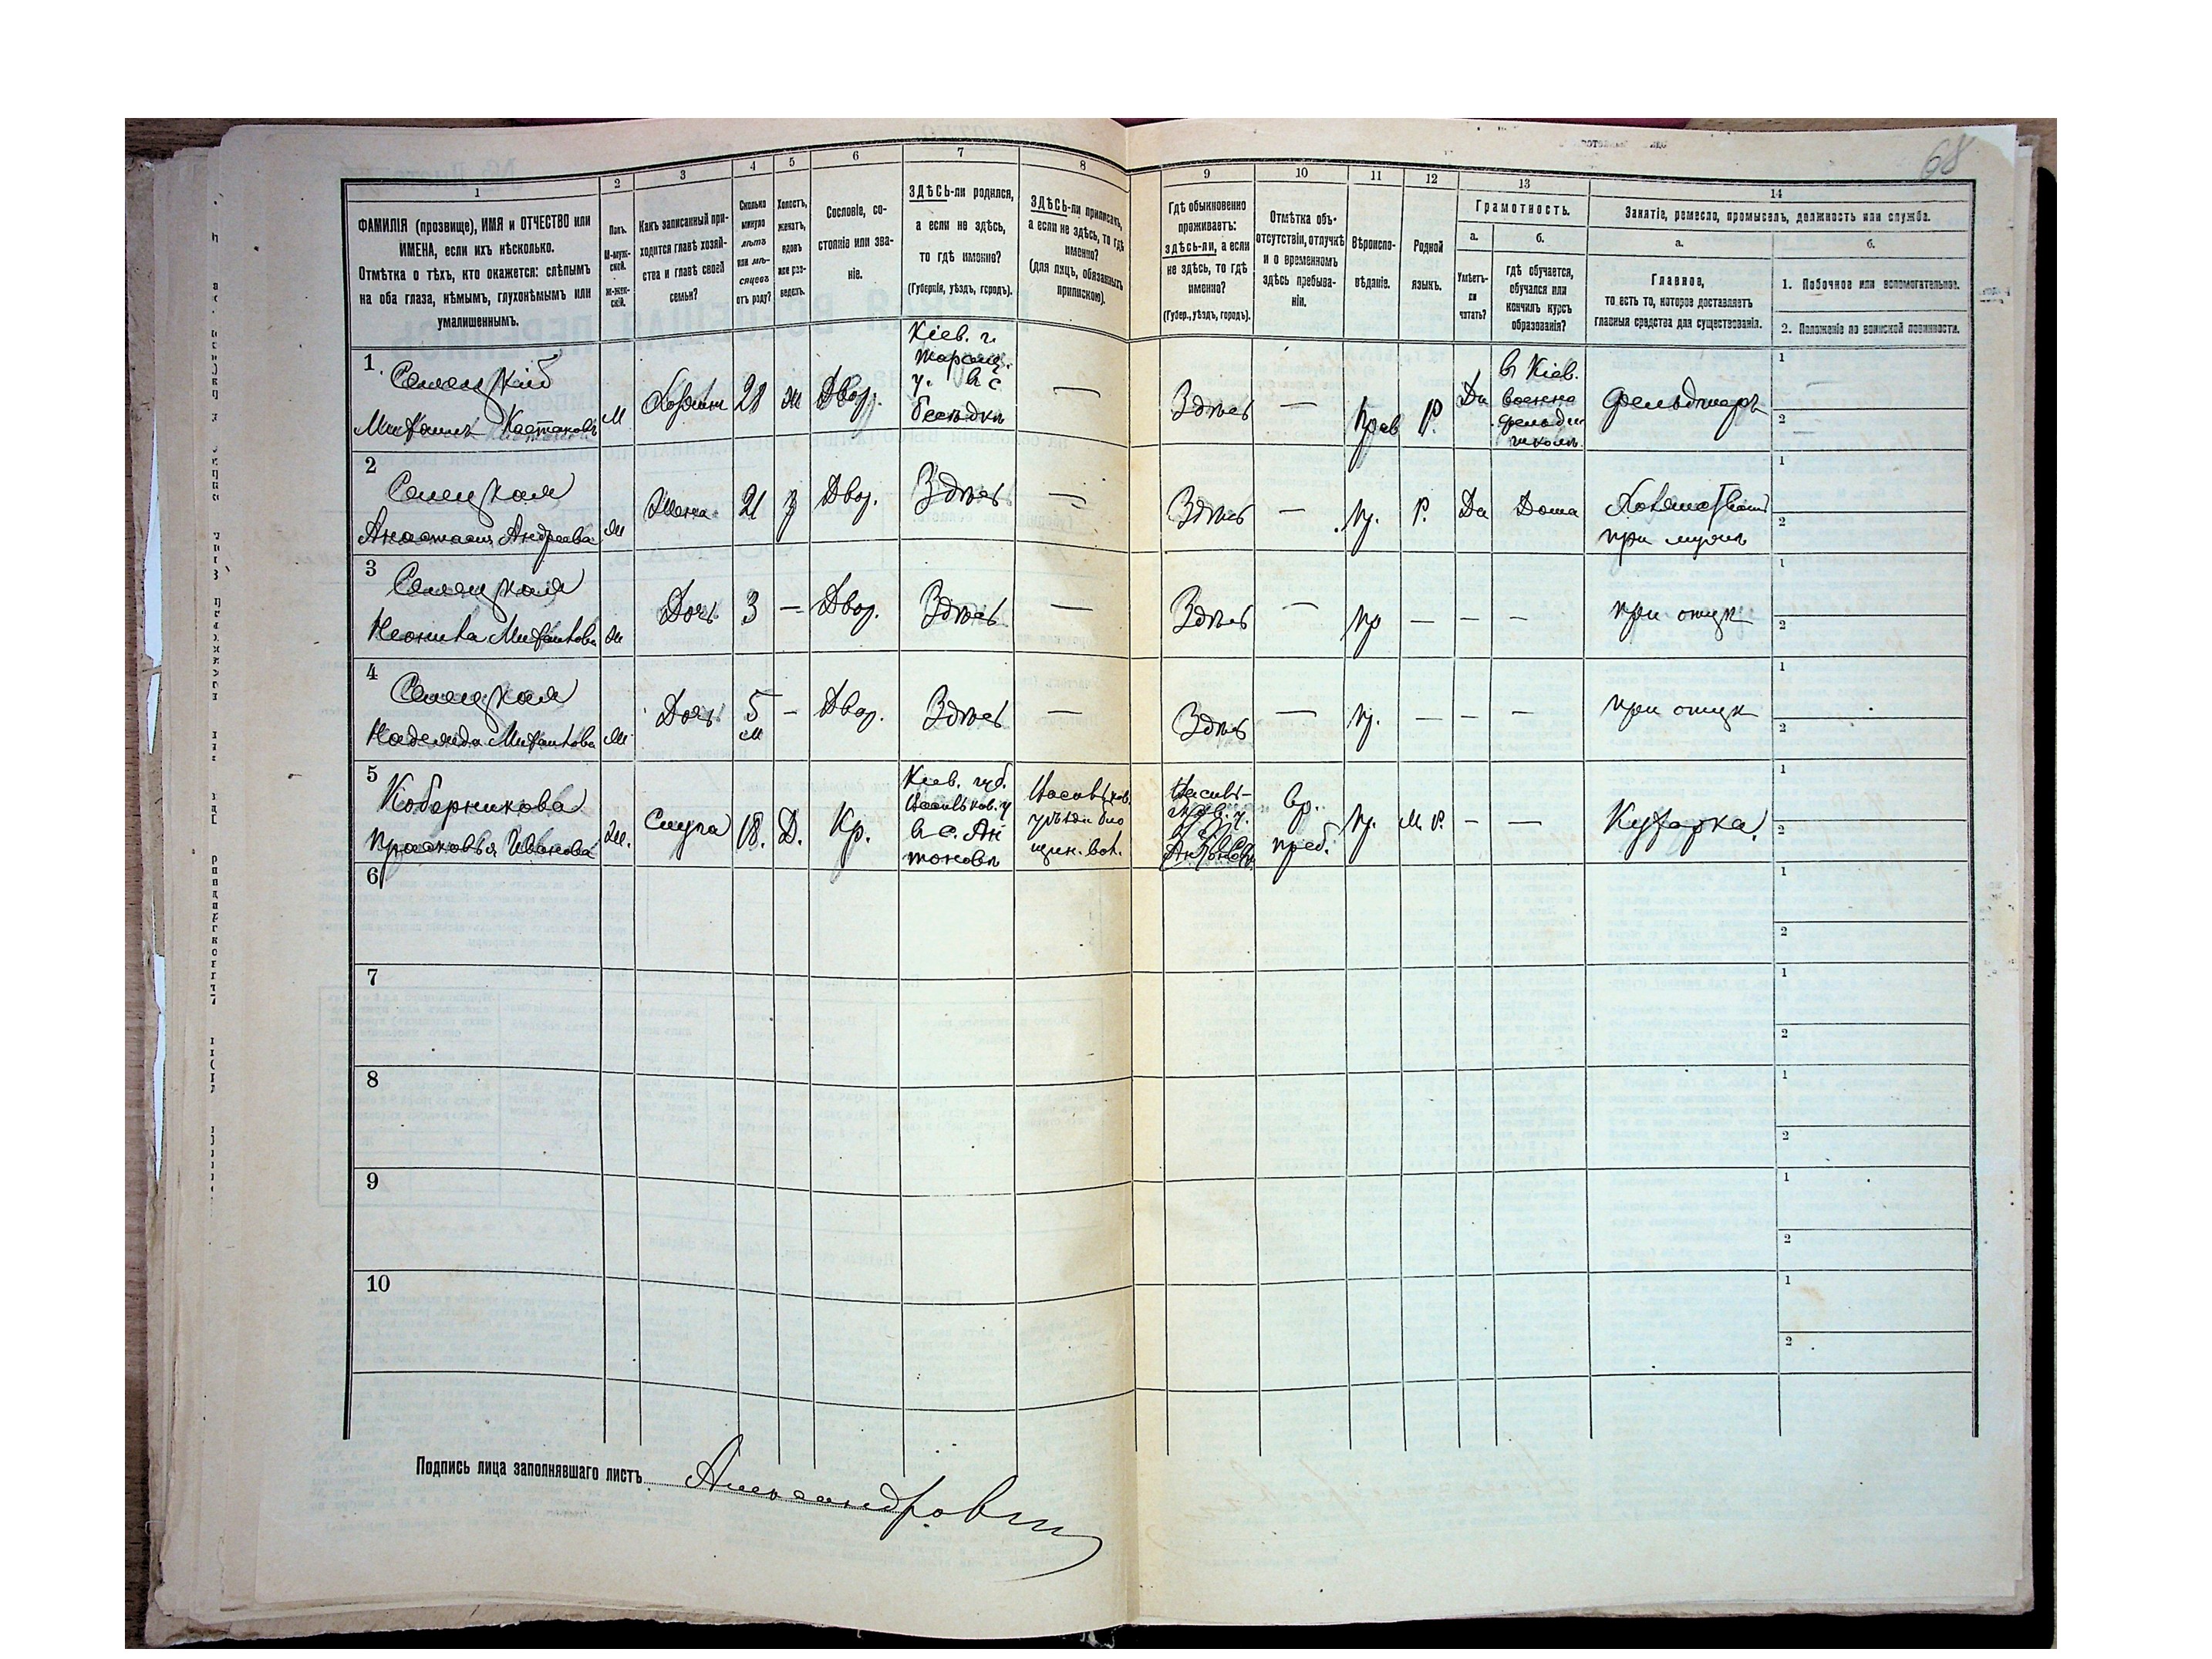 68
1
2
3
4
5
6
7
8
9
10
11
12
13
14
ФАМИЛІЯ (прозвище), ИМЯ и ОТЧЕСТВО или
ИМЕНА, если ихъ нѣсколько.
Отмѣтка о тѣхъ, кто окажется: слѣпымъ
на оба глаза, нѣмымъ, глухонѣмымъ или
умалишеннымъ.
Полъ.
М-муж-
ской.
ж-жен-
скій.
Какъ записанный при-
ходится главѣ хозяй-
ства и главѣ своей
семьи?
Сколько
минуло
лѣтъ
или мѣ-
сяцевъ
отъ роду?
Холостъ,
женатъ,
вдовъ
или раз-
веденъ.
Сословіе, со-
стояніе или зва-
ніе.
ЗДѢСЬ-ли родился,
а если не здѣсь,
то гдѣ именно?
(Губернія, уѣздъ, городъ).
ЗДѢСЬ-ли приписанъ,
а если не здѣсь, то гдѣ
именно?
(для лицъ, обязанныхъ
припискою).
Гдѣ обыкновенно
проживаетъ:
здѣсь-ли, а если
не здѣсь, то гдѣ
именно?
(Губер., уѣздъ, городъ).
Отмѣтка объ-
отсутствіи, отлучкѣ
и о временномъ
здѣсь пребыва-
ніи.
Вѣроиспо-
вѣданіе.
Родной
языкъ.
Грамотность.
а.
б.
Умѣетъ-
ли
читать?
гдѣ обучается,
обучался или
кончилъ курсъ
образованія?
Занятіе, ремесло, промыселъ, должность или служба.
а.
б.
Главное,
то есть то, которое доставляетъ
главныя средства для существованія.
1. Побочное или вспомогательное.
2. Положеніе по воинской повинности.
1.
Михаилъ
М
Хозяинъ
28
ж
Двор.
Кіев. г.
у. в с.
—
Здѣсь
—
Прав
Р.
Да
в Кіев.
военно
школѣ.
Фельдшаръ
1
2
2
Анастасія Андреева
ж
Жена
21
з
Двор.
Здѣсь
—
Здѣсь
—
Пр.
Р.
Да
Дома
при мужѣ
1
2
3
ж
Дочь
3
—
Двор.
Здѣсь
—
Здѣсь
—
Пр
—
—
—
при отцѣ
1
2
4
Надежда
ж
Дочь
5
м
—
Двор.
Здѣсь
—
Здѣсь
—
Пр.
—
—
—
при отцѣ
1
2
5
Коберникова
Прасковья Иванова
Ж.
Слуга
18.
Д.
Кр.
Кіев. губ.
Васильков. у
в с. Ан
тоновѣ
Васильков.
Василь-
ков. у.
вр.
преб.
Пр.
М. Р.
—
—
Кухарка.
1
2
6
1
2
7
1
2
8
1
2
9
1
2
10
1
2
Подпись лица заполнявшаго листъ